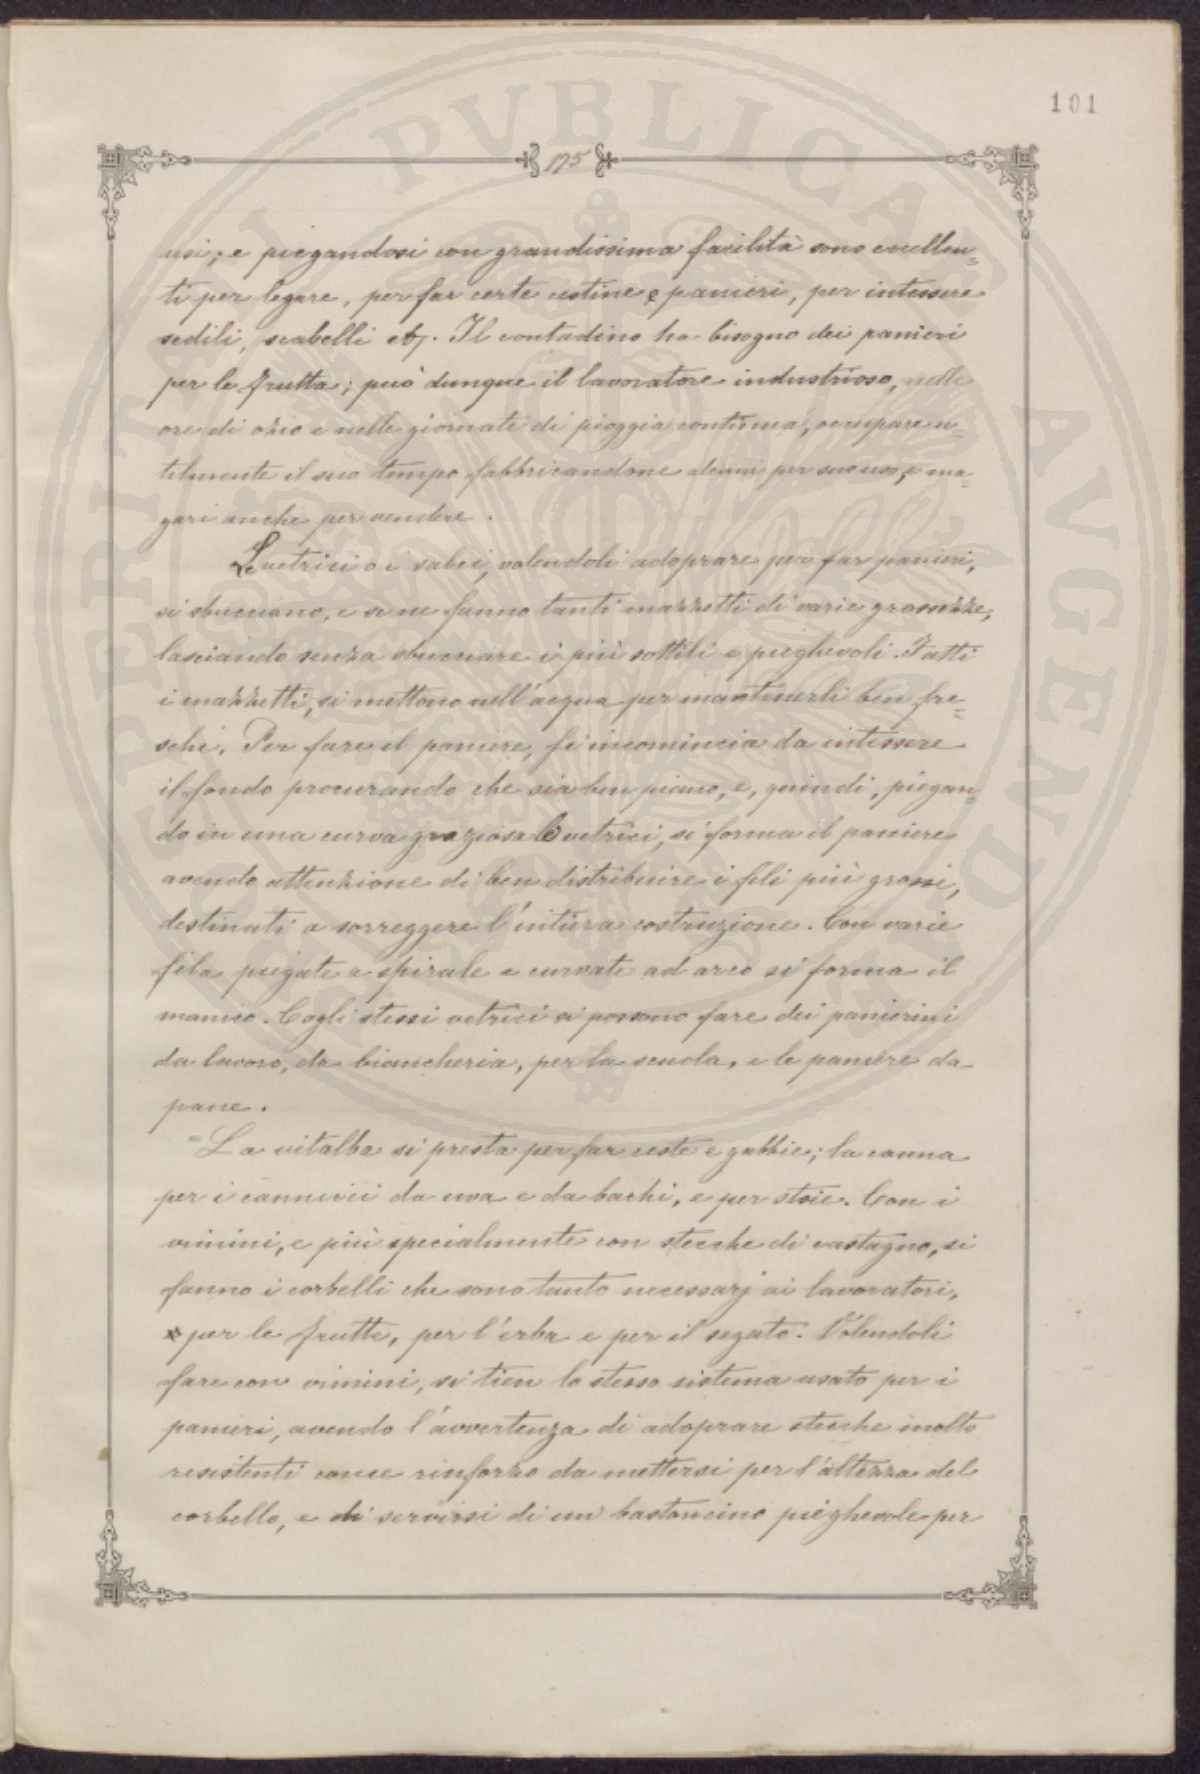 101
175
usi; e piegandosi con grandissima facilità sono eccellen=
ti per legare, per far certe cestine e panieri, per intessere
sedili, scabelli etc. Il contadino ha bisogno dei panieri
per le frutta; può dunque il lavoratore industrioso, nelle
ore di ozio e nelle giornate di pioggia continua, occupare u=
tilmente il suo tempo fabbricandone alcuni per suo uso, e ma=
gari anche per vendere.
Le vetrici o i salci, volendoli adoprare per far panieri,
si sbucciano, e se ne fanno tanti mazzetti di varie grossezze,
lasciando senza sbucciare i più sottili e pieghevoli. Fatti
i mazzetti, si mettono nell'acqua per mantenerli ben fre=
schi. Per fare il paniere, si incomincia da intessere
il fondo procurando che sia ben piano, e, quindi, piegan=
do in una curva graziosa le vetrici, si forma il paniere
avendo attenzione di ben distribuire i fili più grossi,
destinati a sorreggere l'intiera costruzione. Con varie
fila piegate a spirale e curvate ad arco si forma il
manico. Cogli stessi vetrici si possono fare dei panierini
da lavoro, da biancheria, per la scuola, e le paniere da
pane.
La vitalba si presta per far ceste e gabbie; la canna
per i cannicci da uva e da bachi, e per stoie. Con i
vimini, e più specialmente con stecche di castagno, si
fanno i corbelli che sono tanto necessarj ai lavoratori,
per le frutte, per l'erba e per il segato. Volendoli
fare con vimini, si tien lo stesso sistema usato per i
panieri, avendo l'avvertenza di adoprare stecche molto
resistenti come rinforzo da mettersi per l'altezza del
corbello, e di servirsi di un bastoncino pieghevole per
PERITURA PVBLICAE AVGENDO